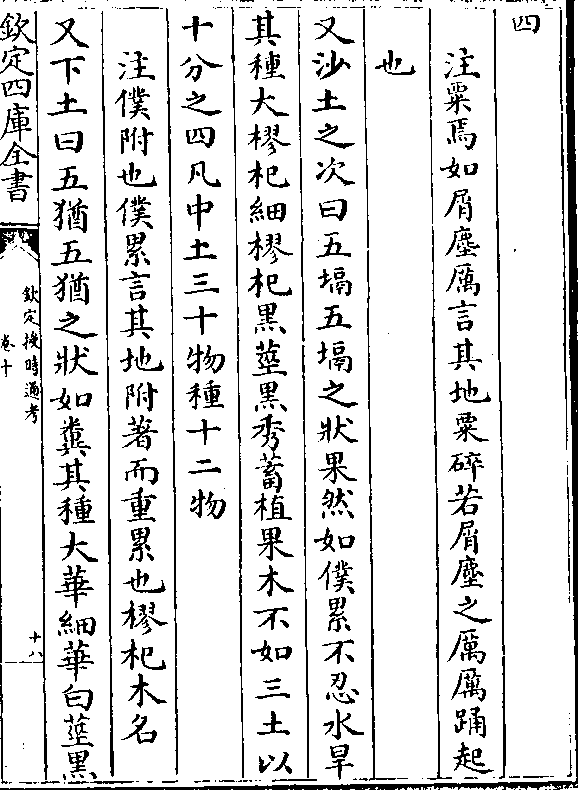 四
注粟焉如屑塵厲言其地粟碎若屑塵之厲厲踊起
也
又沙土之次曰五塥五塥之狀果然如僕累不忍水旱
其種大樛杞細樛杞黑莖黑秀蓄植果木不如三土以
十分之四凡中土三十物種十二物
注僕附也僕累言其地附著而重累也樛杞木名
又下土曰五猶五猶之狀如糞其種大華細華白莖黑
欽定四庫全書
欽定授時通考
卷十
十八